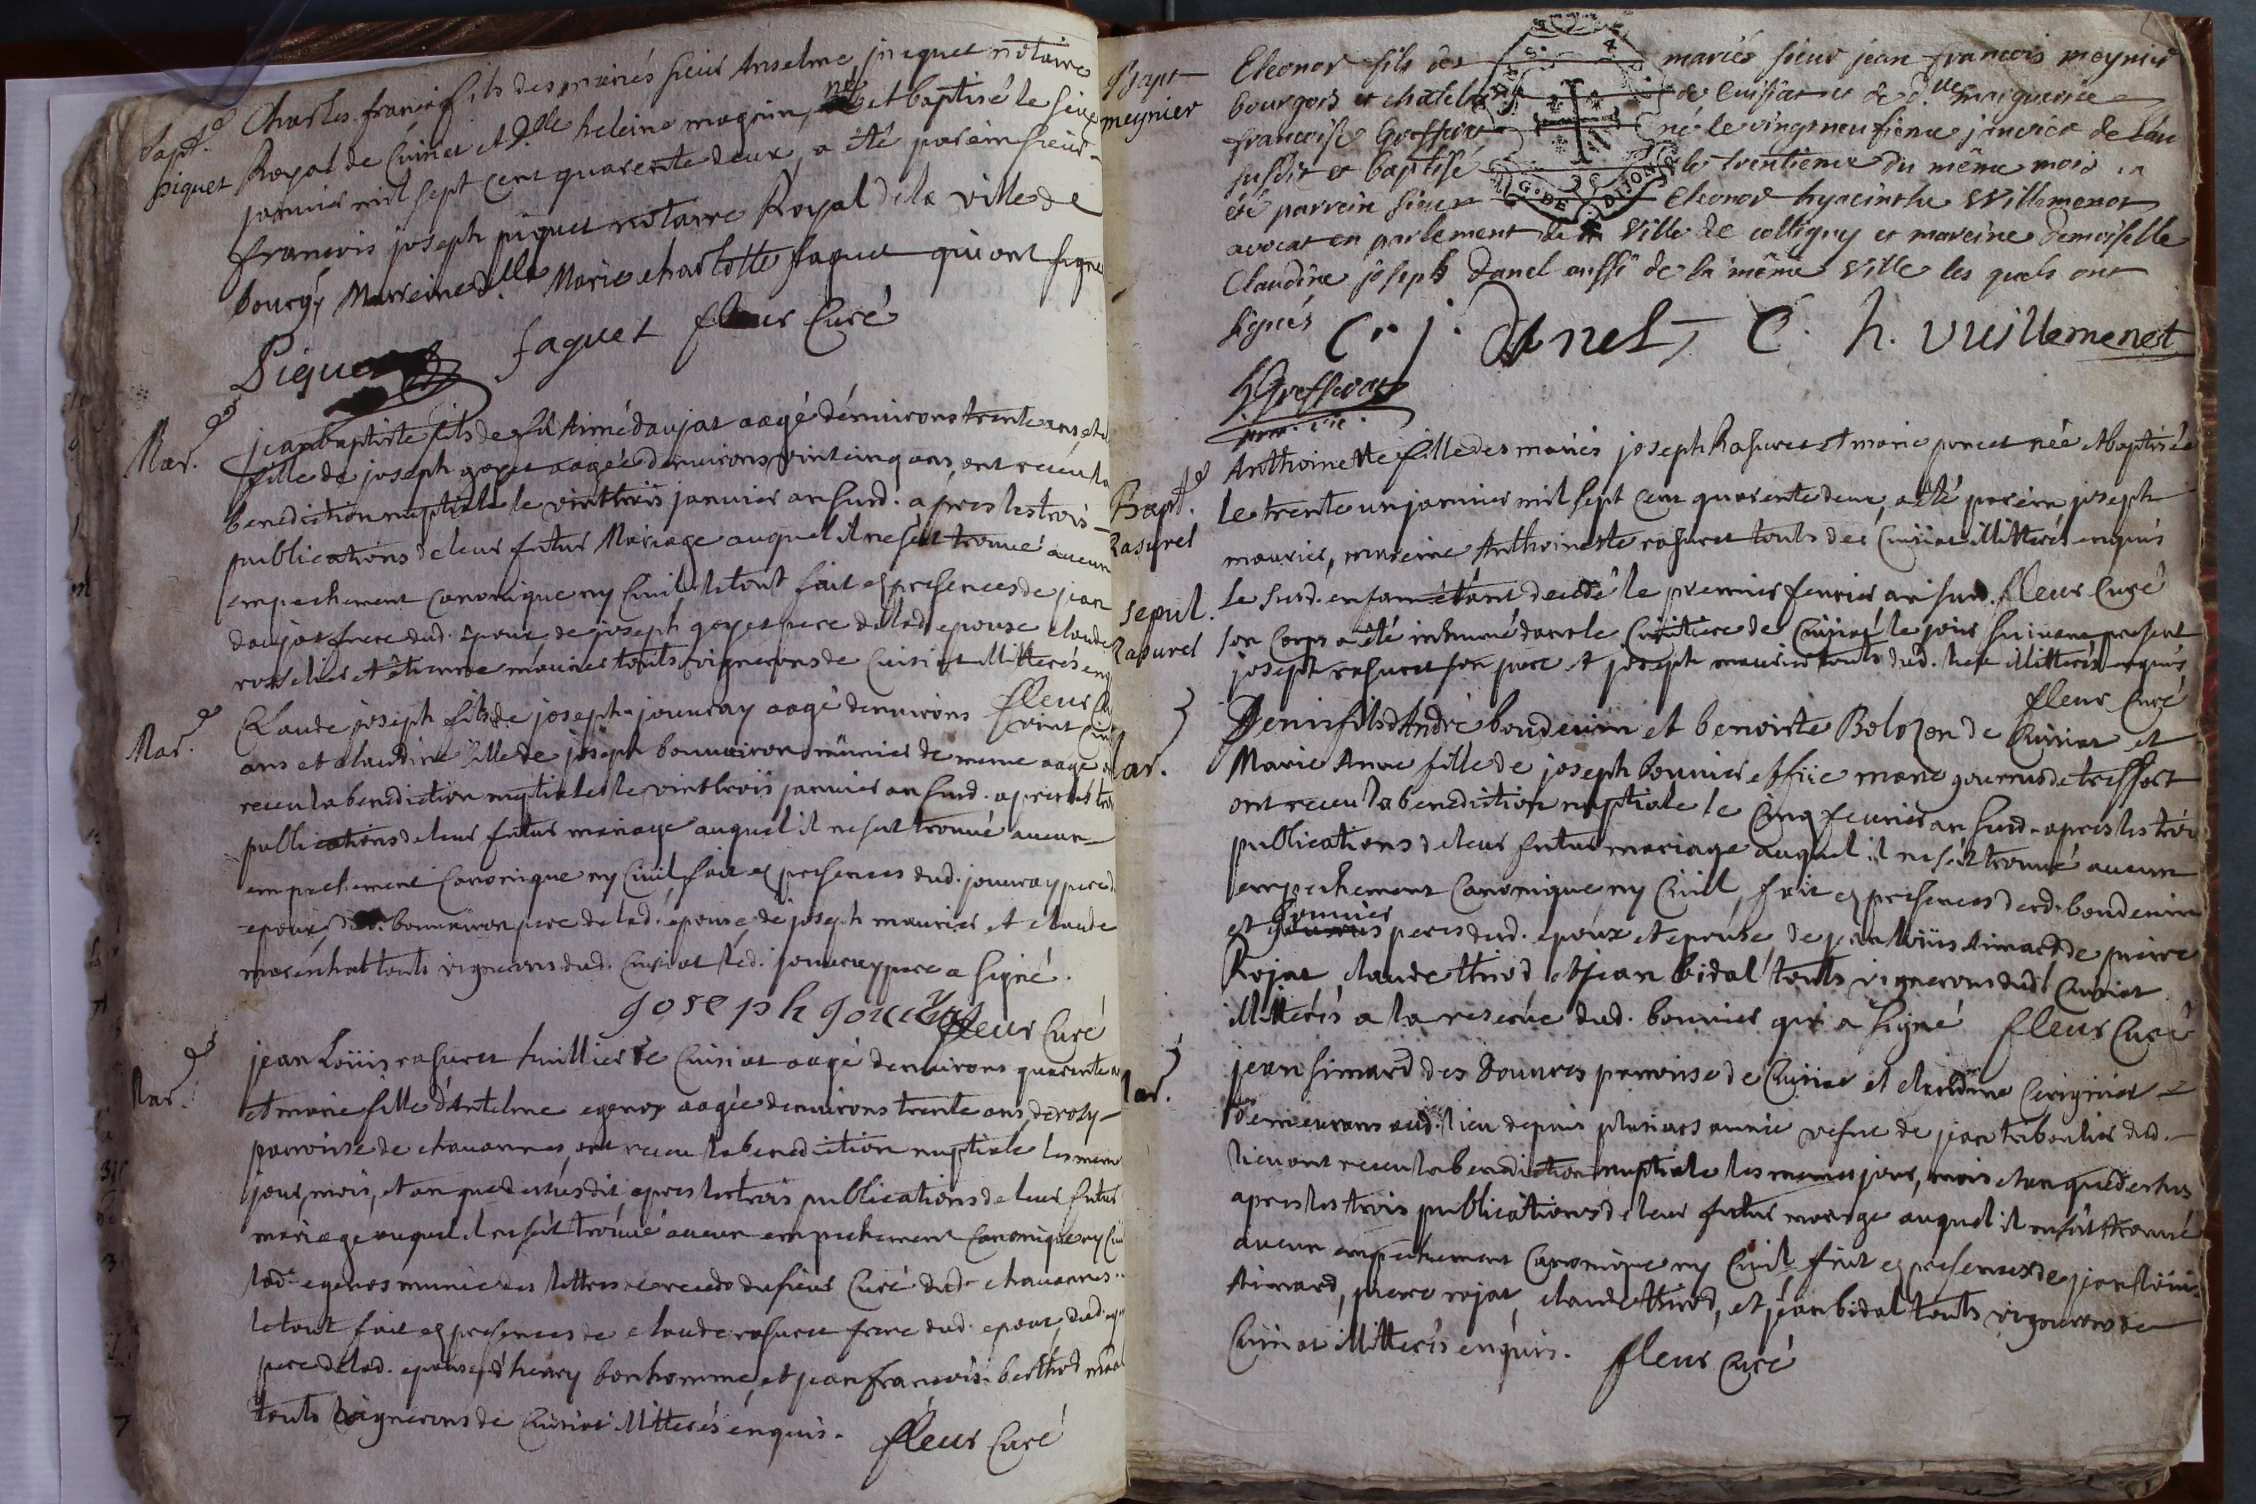 Bapt.
piquet
Charles francois fils des mariés sieur Anselme piequet notaire
Royal de Cuisiat et D.lle heleine magnin, né et baptisé le seize
janvier mil sept cent quarente deux, a été parein sieur
francois joseph piquet notaire Royal de la ville de
bourg, Marreine d.lle Marie charlotte faguet qui ont signé
Piquet faguet fleur Curé
Mar.
jean baptiste fils de fû Aimé daujat aagé d'environs trente ans et
fille de joseph goyet aagée d'environs vintcinq ans, ont receu la
benediction nuptiale le vinttrois janvier an susd. apres les trois
publications de leur futur Mariage auquel il ne s'est trouvé aucun
empechement Canonique ny Civil, le tout fait es presences de jean
daujat frere dud. epoux, de joseph goyet pere de lad. epouse claude
rosselier et etienne maurier touts vignerons de Cuisiat illitterés enq
fleur
Mar.
Claude joseph fils de joseph jouvray aagé d'environs vint cinq
ans et claudine fille de joseph bonnaviron münier de meme aage
receu la benediction nuptiale le vinttrois janvier an susd. apres les trois
publications de leur futur mariage auquel il ne s'est trouvé aucun
empechement Canonique ny Civil, fait es presences dud. jouvray pere
epoux, dud. bonnaviron pere de lad. epouse, de joseph maurier et claude
touts vignerons dud. Cuisiat led. jouvray pere a signé.
joseph jouvray fleur Curé
Mar.
jean Loüis rasuret huillier de Cuisiat aagé d'environs quarente
et marie fille d'Antelme egenos aagée d'environs trente ans, de rosy
parroisse de chavannes, ont receu la benediction nuptiale les memes
jour, mois, et an que dessus dit apres les trois publications de leur futur
mariage auquel il ne s'est trouvé aucun empechement Canonique ny Civil
lad. egenos munie des lettres recredo du sieur Curé dud. chavannes.
le tout fait es presences de claude rasuret frere dud. epoux, dud.
pere de lad. epouse, d'henry bonhomme, et jean francois berthod
touts vignerons de Cuisiat illitterés enquis. fleur Curé
Bapt
meynier
Eleonor fils des mariés sieur jean francois meynier
bourgois et chatelain de Cuisiat et de d.lle marguerite
francoise né le vingtneufieme janvier de l'an
susdit et baptisé le trentieme du même mois a
été parrein sieur Eleonor hyacinthe Willemenot
avocat en parlement de la Ville de colligny et mareine demoiselle
Claudine joseph Danel aussi de la même Ville les quels ont
signés C. j. danel, E. h. vuillemenot
Bapt.
Rasurel
Anthoinette fille des mariés joseph Rasuret et marie poncet née et baptisée
le trente un janvier mil sept cent quarente deux, a été parein joseph
maurier, mareine Anthoinette rasuret touts de Cuisiat illitterés enquis
sepul.
Rasurel
Le susd. enfant étant decedé le premier fevrier an susd. fleur Curé
son corps a été inhumé dans le Cimitiere de Cuisiat le jour suivant present
joseph rasuret son pere et joseph maurier touts dud. lieu illitterés enquis
fleur Curé
Mar.
Denis fils d'André boudevin et benoite Bolozon de Cuisiat et
Marie Anne fille de joseph bonnier et fûe marie gournus de treffort
ont receu la benediction nuptiale le Cinq fevrier an susd. apres les trois
publications de leur futur mariage auquel il ne s'est trouvé aucun
empechement Canonique, ny Civil, fait es presences desd. boudevin
et bonnier peres desd. epoux et epouse, de jean loüis Aimard de pierre
Rojat, claude thiod et jean bidal touts vignerons dud. Cuisiat
illitterés a la reserve dud. bonnier qui a signé fleur Curé
Mar.
jean simard des Douvres parroisse de Cuisiat et claudine Cerignier
demeurans aud. lieu depuis plusieurs année vefve de jean tribouliet dud.
lieu ont receu la benediction nuptiale les memes jour, mois et an que dessus
apres les trois publications de leur futur mariage auquel il ne s'est trouvé
aucun empechement Canonique ny Civil fait es presences de jean loüis
Aimard, pierre rojat, claude thiod, et jean bidal touts vignerons de
Cuisiat illitterés enquis. fleur Curé